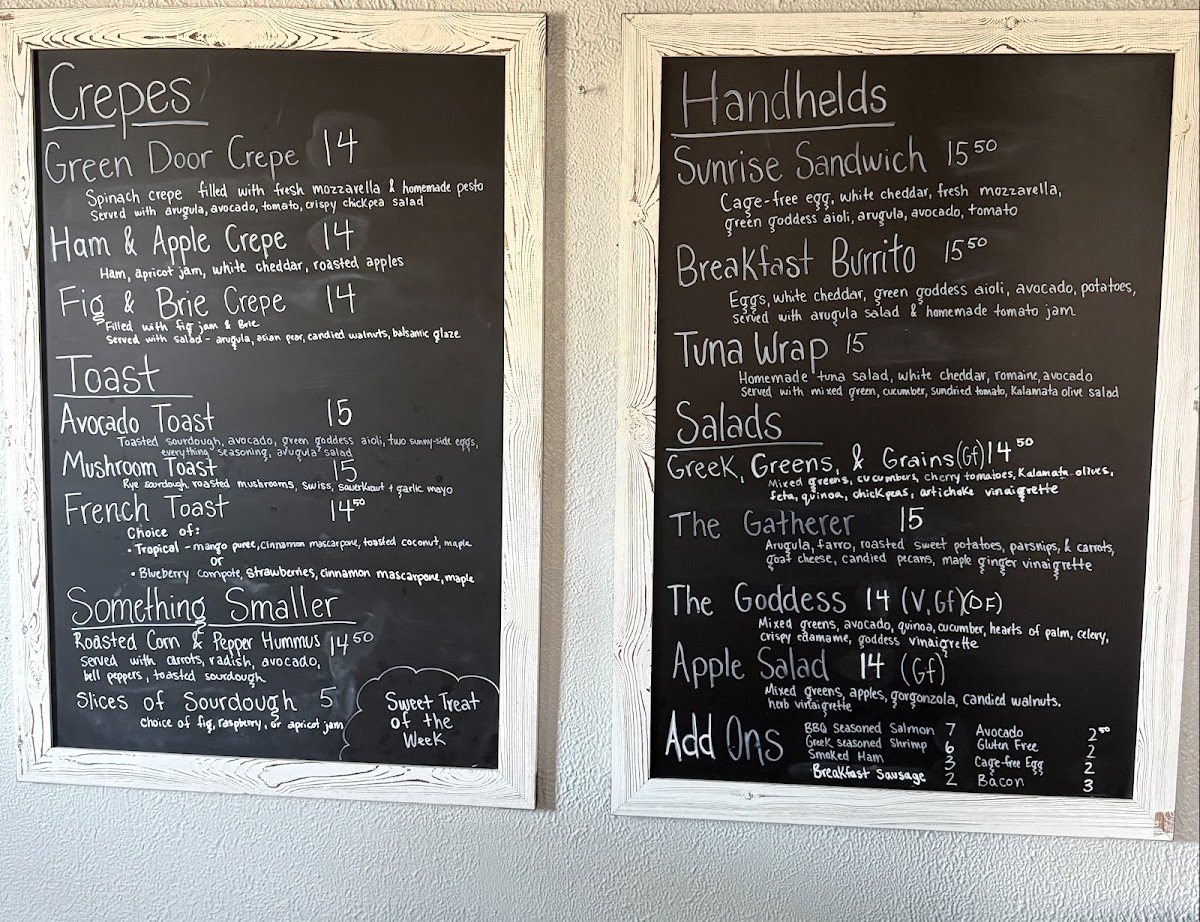 Crepes
Green Door Crepe 14
Spinach crepe filled with fresh mozzarella & homemade pesto
Served with arugula, avocado, tomato, crispy chickpea salad
Ham & Apple Crepe 14
Ham, apricot jam, white cheddar, roasted apples
Fig & Brie Crepe 14
Filled with fig jam & Brie
Served with salad - arugula, asian pear, candied walnuts, balsamic glaze
Toast
Avocado Toast 15
Toasted sourdough, avocado, green goddess aioli, two sunny-side eggs,
everything seasoning, arugula salad
Mushroom Toast 15
Rye sourdough, roasted mushrooms, swiss, sauerkraut + garlic mayo
French Toast 14 50
Choice of:
• Tropical - mango puree, cinnamon mascarpone, toasted coconut, maple
or
• Blueberry compote, strawberries, cinnamon mascarpone, maple
Something Smaller
Roasted Corn & Pepper Hummus 14 50
served with carrots, radish, avocado,
bell peppers, toasted sourdough
Slices of Sourdough 5
choice of fig, raspberry, or apricot jam
Sweet Treat
of the
Week
Handhelds
Sunrise Sandwich 15 50
Cage-free egg, white cheddar, fresh mozzarella,
green goddess aioli, arugula, avocado, tomato
Breakfast Burrito 15 50
Eggs, white cheddar, green goddess aioli, avocado, potatoes,
served with arugula salad & homemade tomato jam
Tuna Wrap 15
Homemade tuna salad, white cheddar, romaine, avocado
Served with mixed green, cucumber, sundried tomato, Kalamata olive salad
Salads
Greek, Greens, & Grains (Gf) 14 50
Mixed greens, cucumbers, cherry tomatoes, Kalamata olives,
feta, quinoa, chickpeas, artichoke vinaigrette
The Gatherer 15
Arugula, farro, roasted sweet potatoes, parsnips, & carrots,
goat cheese, candied pecans, maple ginger vinaigrette
The Goddess 14 (V, Gf)(DF)
Mixed greens, avocado, quinoa, cucumber, hearts of palm, celery,
crispy edamame, goddess vinaigrette
Apple Salad 14 (Gf)
Mixed greens, apples, gorgonzola, candied walnuts.
herb vinaigrette
Add Ons
BBQ Seasoned Salmon 7
Greek seasoned Shrimp 6
Smoked Ham 3
Breakfast Sausage 2
Avocado 2 50
Gluten Free 2
Cage-free Egg 2
Bacon 3